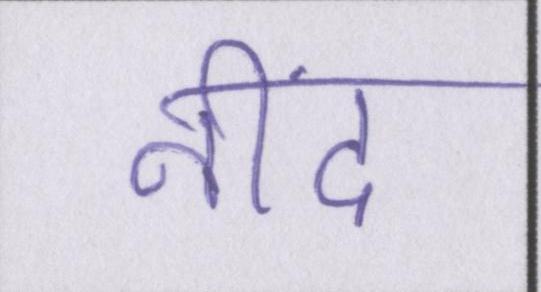 नींद